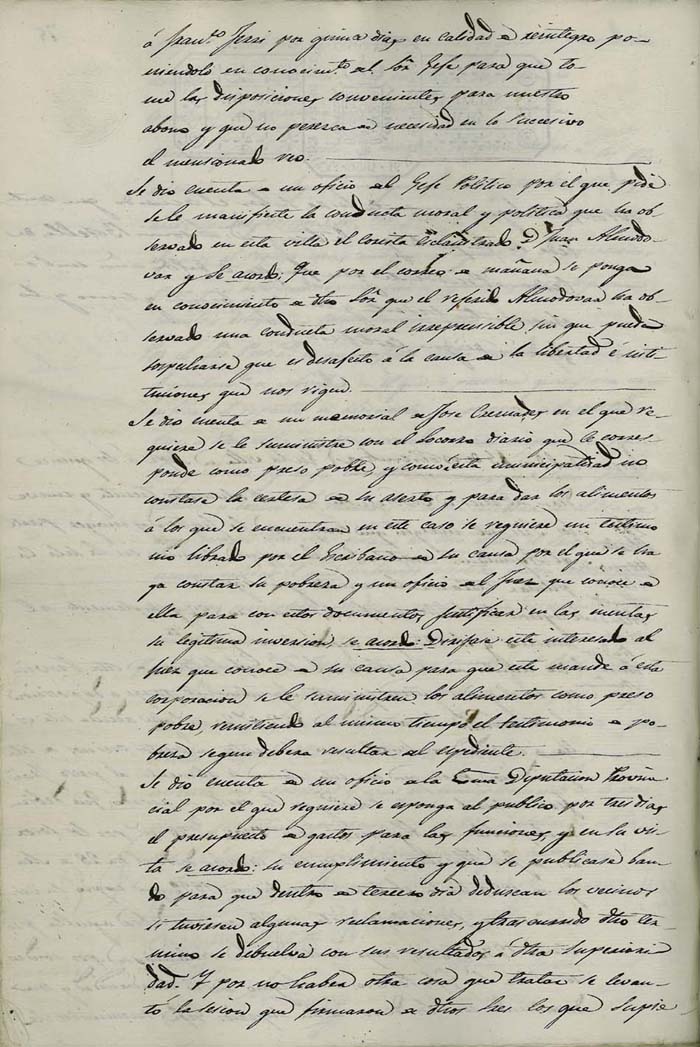 á Fran.co Ferri por quince dias en calidad de reintegro po-
niendolo en conocim.to del Sõr Gefe para que to-
me las disposiciones convenientes para nuestro
abono y que no peresca de necesidad en lo sucesivo
el mencionado reo.
Se dio cuenta de un oficio del Gefe Politico por el que pide
se le manifieste la conducta moral y politica que ha ob-
servado en esta villa el Corista Esclaustrado D. Juan Almodo-
var y Se acordó: Que por el correo de mañana se ponga
en conocimiento de dho Sõr que el referido Almodovar ha ob-
servado una conducta moral irreprensible, sin que pueda
sospecharse que es desafecto á la causa de la libertad é insti-
tuciones que nos rigen.
Se dio cuenta de un memorial de Jose Cremades en el que re-
quiere se le suministre con el socorro diario que le corres-
ponde como preso pobre, y como á esta municipalidad no
constase la certesa de su aserto y para dar los alimentos
á los que se encuentran en este caso se requiere un testimo
nio librado por el Escribano de su causa por el que se ha
ga constar su pobreza y un oficio del Juez que conoce de
ella para con estos documentos justificar en las cuentas
su legitima inversion, se acordó: Dirijase este interesado al
Juez que conoce de su causa para que este mande á esta
corporacion se le suministren los alimentos como preso
pobre, remitiendo al mismo tiempo el testimonio de po-
breza segun debera resultar del espediente.
Se dio cuenta de un oficio de la Ecma Diputacion Provin
cial por el que requiere se esponga al publico por tres dias
el presupuesto de gastos para las funciones, y en su vis-
ta se acordó: su cumplimiento y que se publicase ban-
do para que dentro de tercero dia deduscan los vecinos
si tuviesen algunas reclamaciones, y trascurrido dho ter-
mino se debuelva con sus resultados á dha Superiori
dad. Y por no haber otra cosa que tratar se levan-
tó la sesion que firmaron de dhos Sres los que supie